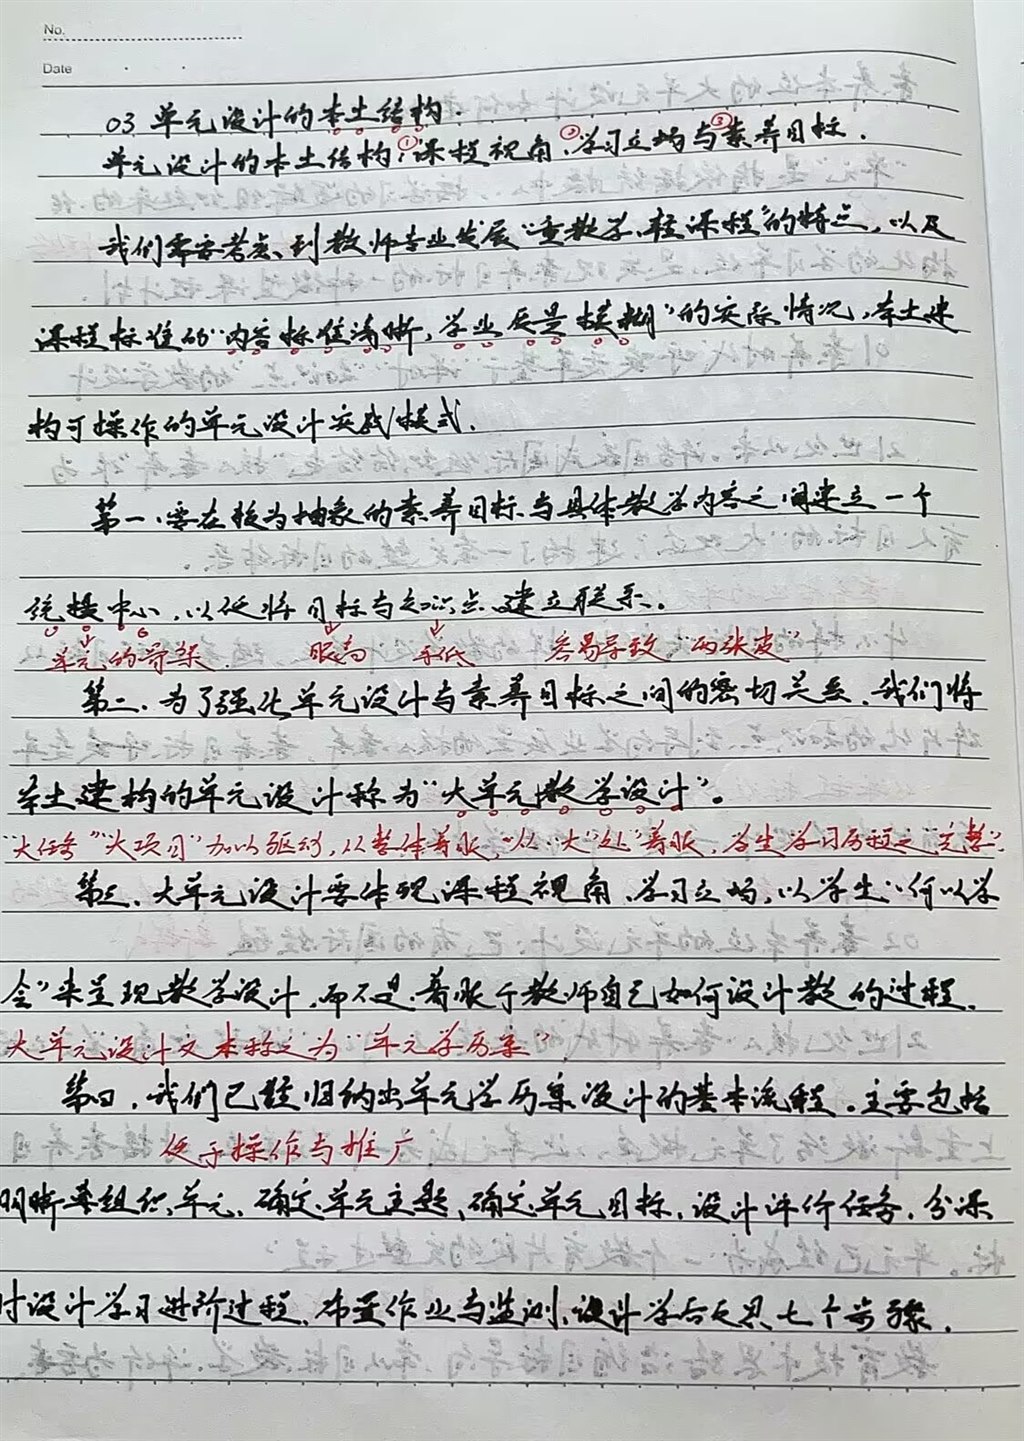 No.
Date
03 单元设计的本土结构.
单元设计的本土结构:①课程视角、②学习立场与③素养目标.
我们需要考虑到教师专业发展“重教学、轻课程”的特点,以及
课程标准的“内容标准清晰,学业质量模糊”的实际情况,本土建
构可操作的单元设计实践模式.
第一、要在较为抽象的素养目标与具体教学内容之间建立一个
统摄中心,以便将目标与知识点建立联系。
单元的骨架. 眼高 手低 容易导致“两张皮”
第二、为了强化单元设计与素养目标之间的密切关系,我们将
本土建构的单元设计称为“大单元教学设计”。
“大任务”“大项目”加以驱动,从整体着眼,“从“大”处”着眼,学生学习历程之“完整”.
第三、大单元设计要体现课程视角、学习立场,以学生“何以学
会”来呈现教学设计,而不是着眼于教师自己如何设计教的过程.
大单元设计文本称之为“单元学历案”.
第四,我们已经归纳出单元学历案设计的基本流程.主要包括
便于操作与推广
明晰并组织单元、确定单元主题、确定单元目标、设计评价任务、分课
时设计学习进阶过程、布置作业与监测、设计学后反思七个步骤.